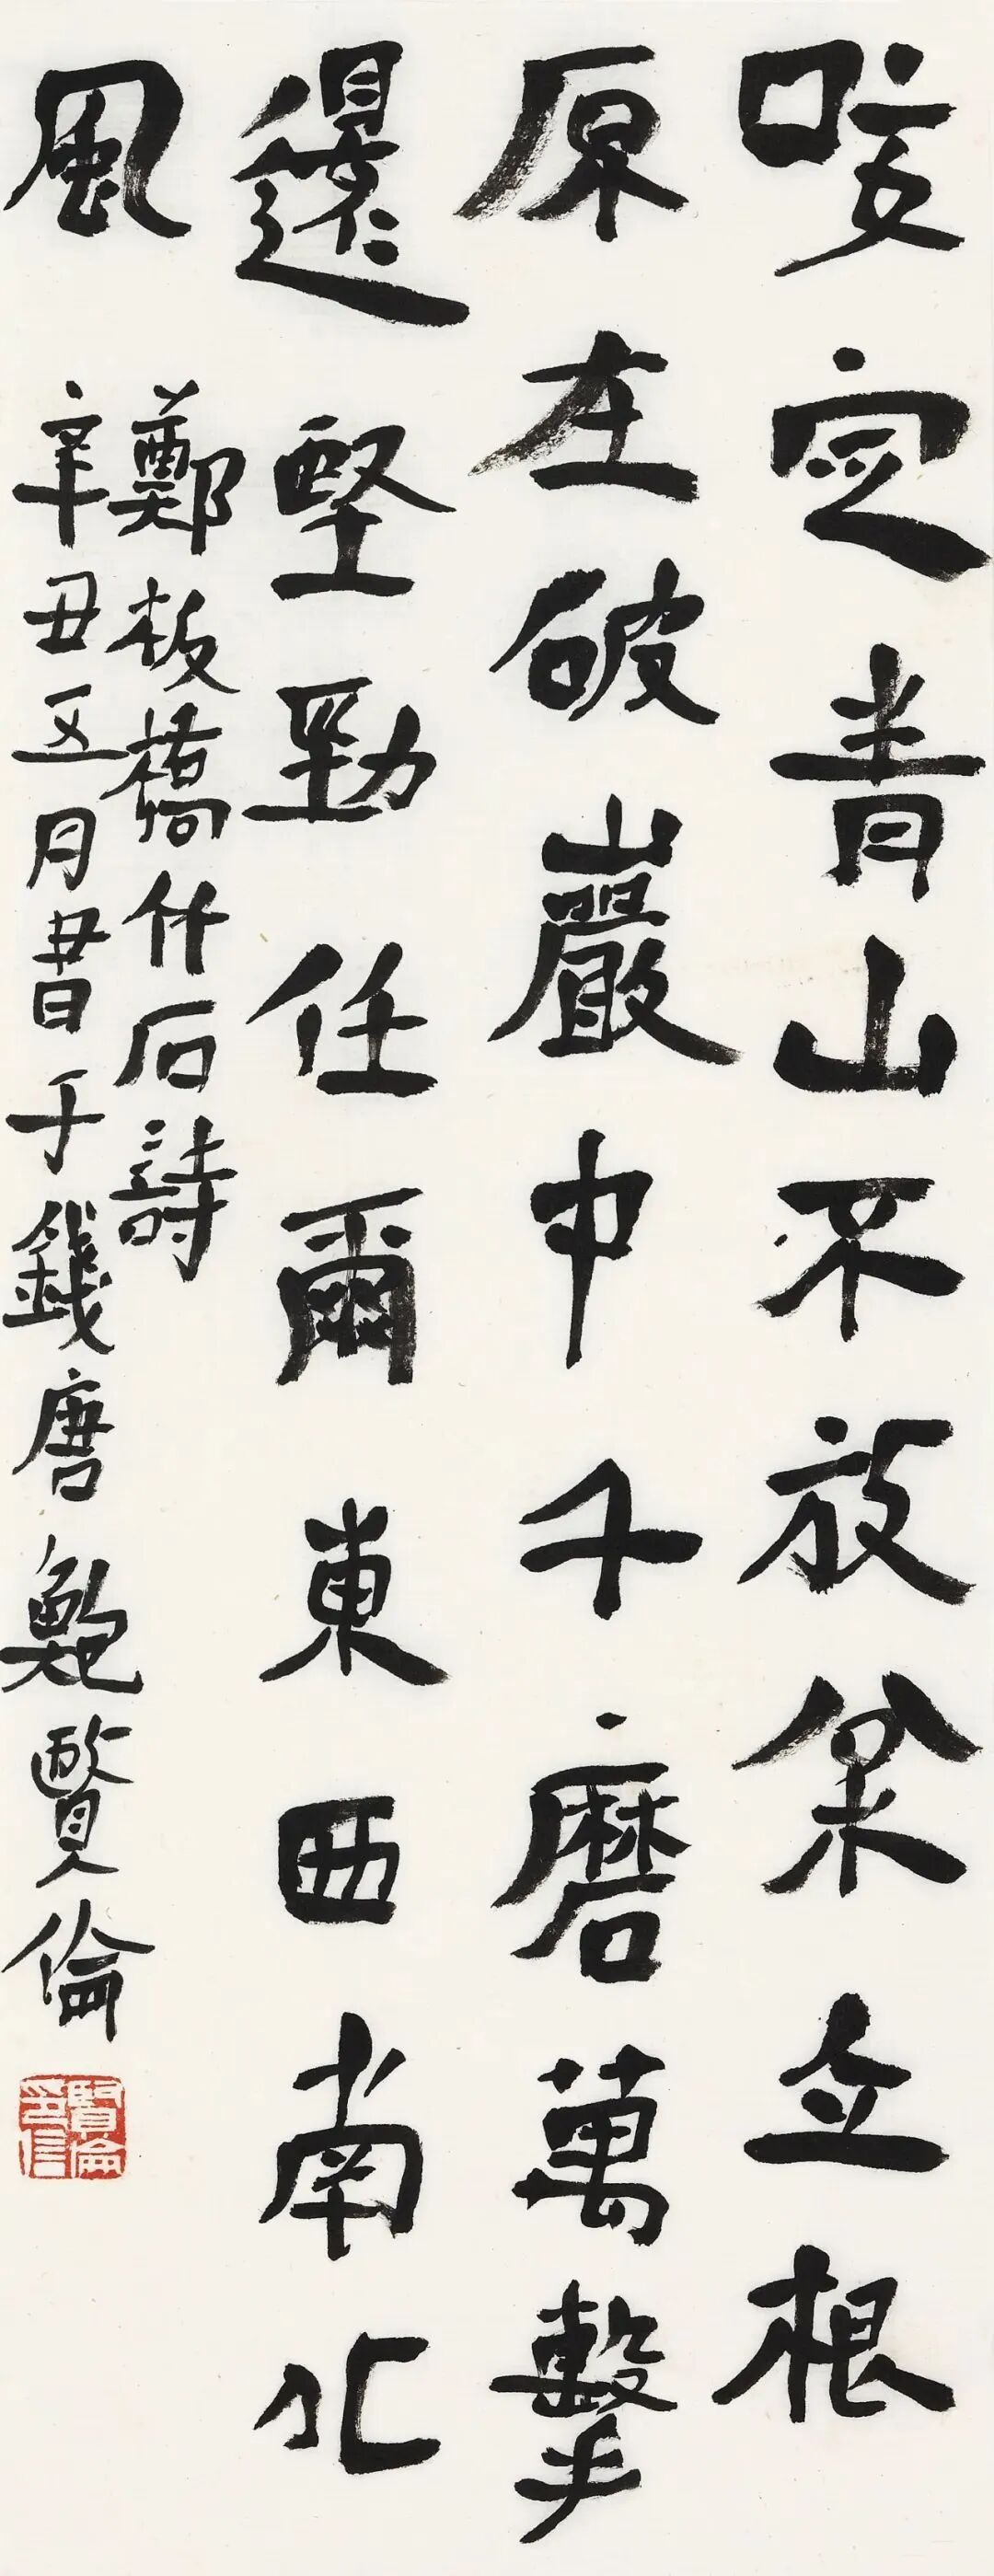 咬定青山不放枀立根
原在破巖中千磨萬擊
還堅勁任爾東西南北
風
鄭板橋竹石詩
辛丑五月書于錢唐鮑賢倫
賢倫印信